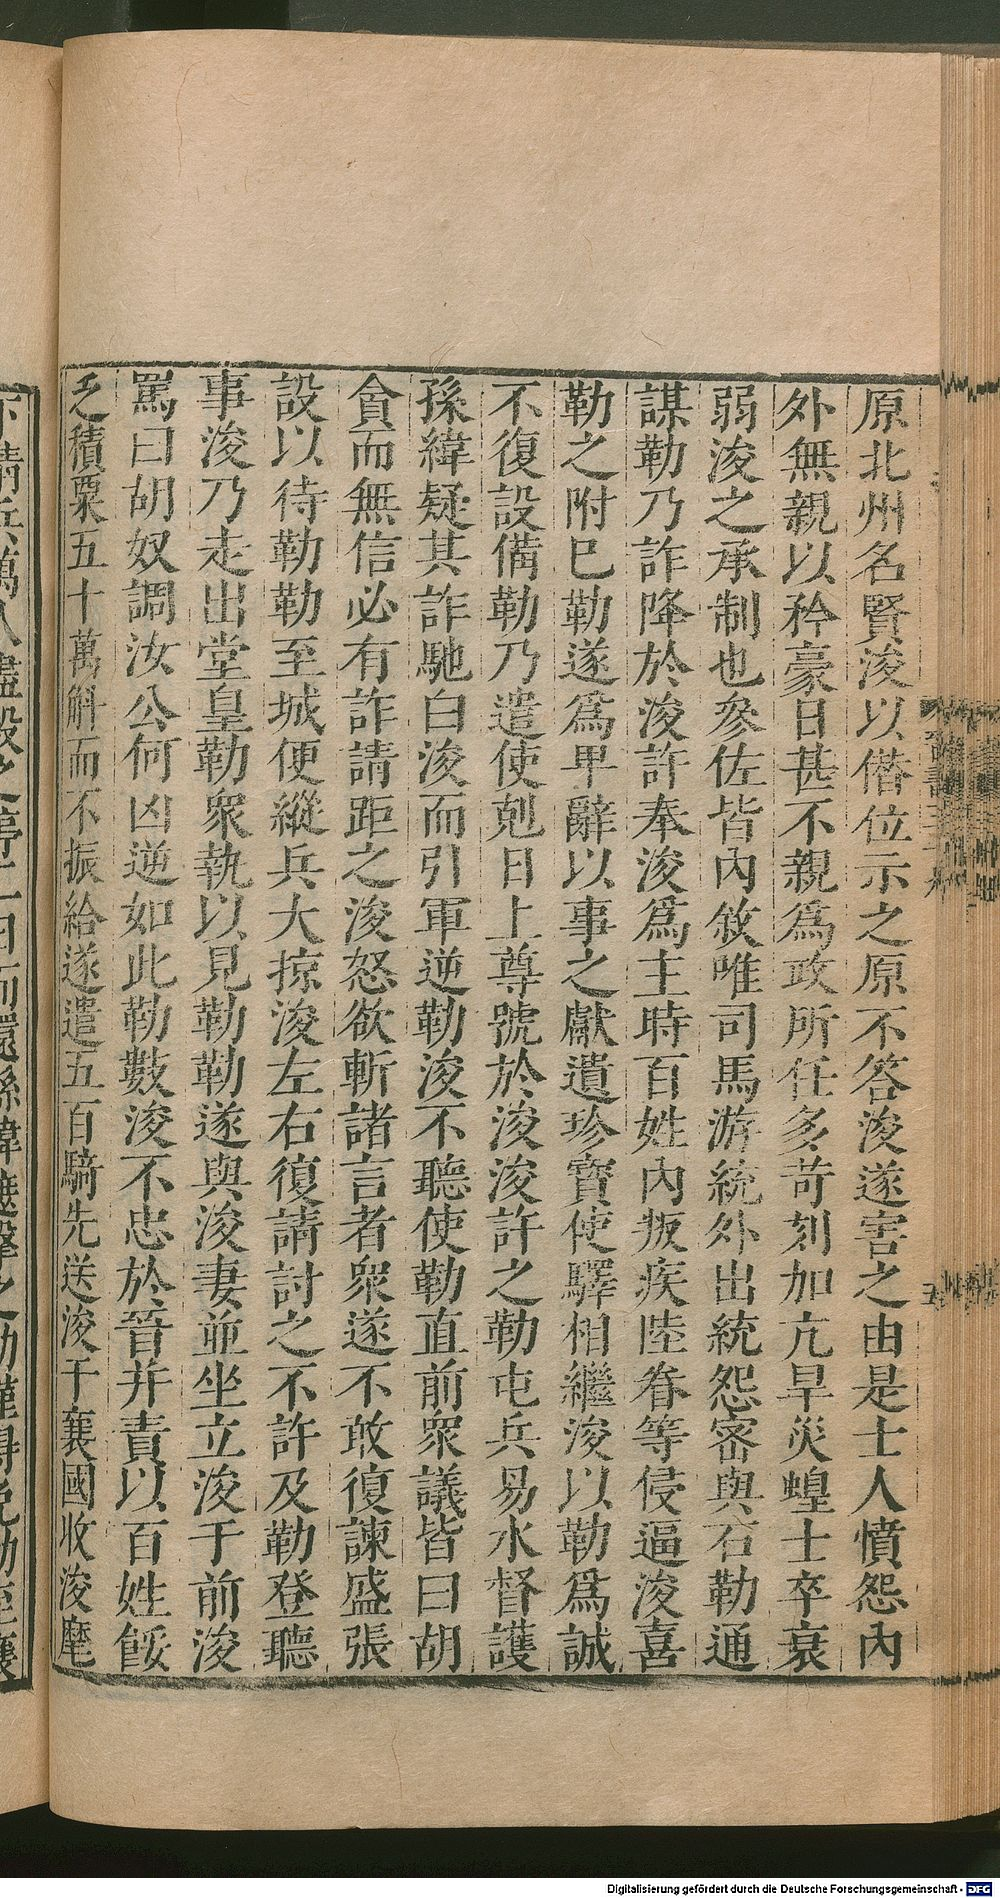 原北州名賢浚以僭位示之原不答浚遂害之由是士人憤怨內
外無親以矜豪日甚不親為政所任多苛刻加亢旱災蝗士卒衰
弱浚之承制也參佐皆內敘唯司馬游統外出統怨密與石勒通
謀勒乃詐降於浚許奉浚為主時百姓內叛疾陸眷等侵逼浚喜
勒之附巳勒遂為卑辭以事之獻遺珍寶使驛相繼浚以勒為誠
不復設備勒乃遣使剋日上尊號於浚浚許之勒屯兵易水督護
孫緯疑其詐馳白浚而引軍逆勒浚不聽使勒直前眾議皆曰胡
貪而無信必有詐請距之浚怒欲斬諸言者眾遂不敢復諫盛張
設以待勒勒至城便縱兵大掠浚左右復請討之不許及勒登聽
事浚乃走出堂皇勒眾執以見勒勒遂與浚妻並坐立浚于前浚
罵曰胡奴調汝公何凶逆如此勒數浚不忠於晉并責以百姓餒
乏積粟五十萬斛而不振給遂遣五百騎先送浚于襄國收浚麾
Digitalisierung gefördert durch die Deutsche Forschungsgemeinschaft - DFG